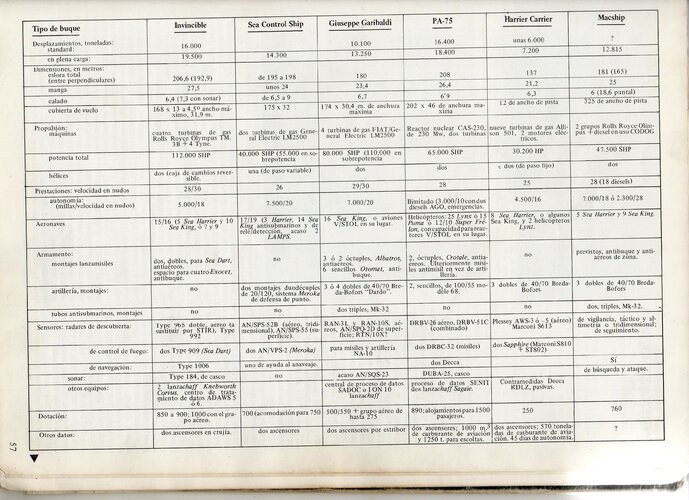 Tipo de buque | Invincible | Sea Control Ship | Giuseppe Garibaldi | PA-75 | Harrier Carrier | Macship
Desplazamientos, toneladas:
standard: | 16.000 | | 10.100 | 16.400 | unas 6.000 | ?
en plena carga: | 19.500 | 14.300 | 13.250 | 18.400 | 7.200 | 12.815
Dimensiones, en metros:
eslora total
(entre perpendiculares) | 206,6 (192,9) | de 195 a 198 | 180 | 208 | 137 | 181 (165)
manga | 27,5 | unos 24 | 23,4 | 26,4 | 21,2 | 25
calado | 6,4 (7,3 con sonar) | de 6,5 a 9 | 6,7 | 6'9 | 6,3 | 6 (18,6 pantal)
cubierta de vuelo | 168 x 13 a 4,5º ancho máximo, 31,9 m. | 175 x 32 | 174 x 30,4 m. de anchura máxima | 202 x 46 de anchura maxima | 12 de ancho de pista | 325 de ancho de pista
Propulsión:
máquinas | cuatro turbinas de gas Rolls Royce Olympus TM. 3B + 4 Tyne. | dos turbinas de gas General Electric LM2500 | 4 turbinas de gas FIAT/General Electric LM2500 | Reactor nuclear CAS-230, de 230 Mw, dos turbinas | nueve turbinas de gas Allison 501, 2 motores eléctricos. | 2 grupos Rolls Royce Olimpus + diesel en uso CODOG
potencia total | 112.000 SHP | 40.000 SHP (55.000 en sobrepotencia | 80.000 SHP (110.000 en sobrepotencia | 65.000 SHP | 30.200 HP | 47.500 SHP
hélices | dos (caja de cambios reversible. | una (de paso variable) | dos | dos | dos (de paso fijo) | dos
Prestaciones: velocidad en nudos | 28/30 | 26 | 29/30 | 28 | 25 | 28 (18 diesels)
autonomía:
(millas/velocidad en nudos) | 5.000/18 | 7.500/20 | 7.000/20 | Ilimitado (3.000/10 con dos diesels AGO, emergencias. | 4.500/16 | 7.000/18 ó 2.300/28
Aeronaves | 15/16 (5 Sea Harrier y 10 Sea King, ó 7 y 9 | 17/19 (3 Harrier, 14 Sea King antisubmarinos y de tele/detección, acaso 2 LAMPS. | 16 Sea King, o aviones V/STOL en su lugar. | Helicópteros: 25 Lynx ó 15 Puma ó 12/10 Super Frelon, con capacidad para reactores V/STOL en su lugar. | 8 Sea Harrier, o algunos Sea King, y 2 helicópteros Lynx. | 5 Sea Harrier y 9 Sea King.
Armamento:
montajes lanzamisiles | dos, dobles, para Sea Dart, antiaéreos. espacio para cuatro Exocet, antibuque. | no | 3 ó 2 óctuples, Albatros, antiaéreos. 6 sencillos Otomat, antibuque. | 2, óctuples, Crotale, antiaéreos. Ulteriormente misiles antimisil en vez de artillería. | no | previstos, antibuque y antiaéreos de zona.
artillería, montajes: | no | dos montajes duodécuples de 20/120, sistema Meroka de defensa de punto. | 3 ó 4 dobles de 40/70 Breda-Bofors "Dardo". | 2, sencillos, de 100/55 modèle 68. | 3 dobles de 40/70 Breda-Bofors | 3 dobles de 40/70 Breda-Bofors
tubos antisubmarinos, montajes | no | no | dos, triples, Mk-32. | no | no | dos, triples, Mk-32.
Sensores: radares de descubierta: | Type 965 doble, aéreo (a sustituir por STIR), Type 992 | AN/SPS-52B (aéreo, tridimensional), AN/SPS-55 (superficie). | RAN-3L y RAN-10S, aéreos, AN/SPQ-2D de superficie; RTN/10X? | DRBV-26 aéreo, DRBV-51C (combinado) | Plessey AWS-3 ó -5 (aéreo) Marconi S613 | de vigilancia, táctico y altimetría o tridimensional; de seguimiento.
de control de fuego: | dos Type 909 (Sea Dart) | dos AN/VPS-2 (Meroka) | para misiles y artillería NA-10 | dos DRBC-32 (misiles) | dos Sapphire (Marconi S810 + ST802)
de navegación: | Type 1006 | uno de ayuda al anaveaje. | | dos Decca | | Sí
sonar: | Type 184, de casco | no | acaso AN/SQS-23 | DUBA-25, casco | | de búsqueda y ataque.
otros equipos: | 2 lanzachaff Knebworth Corvus, centro de tratamiento de datos ADAWS 5 ó 6. | | central de proceso de datos SADOC o I ON 10 lanzachaff | proceso de datos SENIT dos lanzachaff Sagaie. | Contramedidas Decca RDLZ, pasivas.
Dotación: | 850 a 900; 1000 con el grupo aéreo. | 700 (acomodación para 750 | 500/550 + grupo aéreo de hasta 275 | 890; alojamientos para 1500 pasajeros. | 250 | 760
Otros datos: | dos ascensores en crujía. | dos ascensores | dos ascensores por estribor | dos ascensores; 1000 m.³ de carburante de aviación y 1250 t. para escoltas. | dos ascensores; 570 toneladas de carburante de aviación. 45 días de autonomía. | ?
57